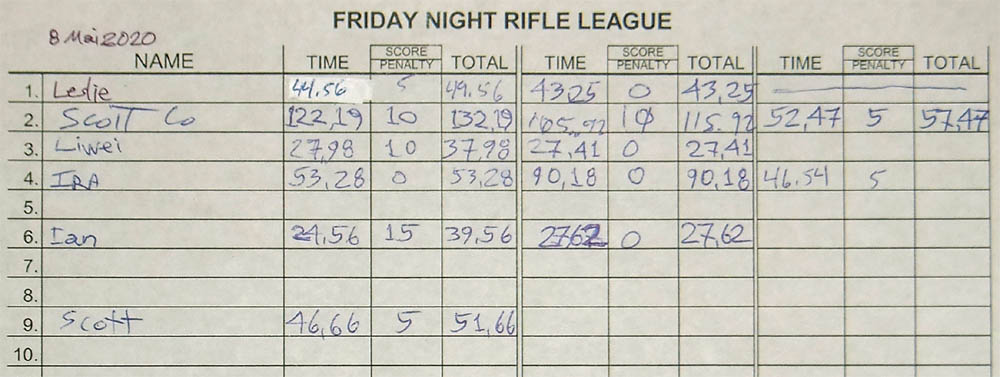 FRIDAY NIGHT RIFLE LEAGUE
8 Mai 2020
NAME TIME SCORE PENALTY TOTAL TIME SCORE PENALTY TOTAL TIME SCORE PENALTY TOTAL
1. Leslie 44.56 5 49.56 43,25 0 43,25
2. Scott Co 122,19 10 132,19 105.92 10 115.92 52,47 5 57,47
3. Liwei 27,98 10 37,98 27,41 0 27,41
4. IRA 53,28 0 53,28 90,18 0 90,18 46.54 5
5.
6. Ian 24,56 15 39,56 27,62 0 27,62
7.
8.
9. Scott 46,66 5 51,66
10.